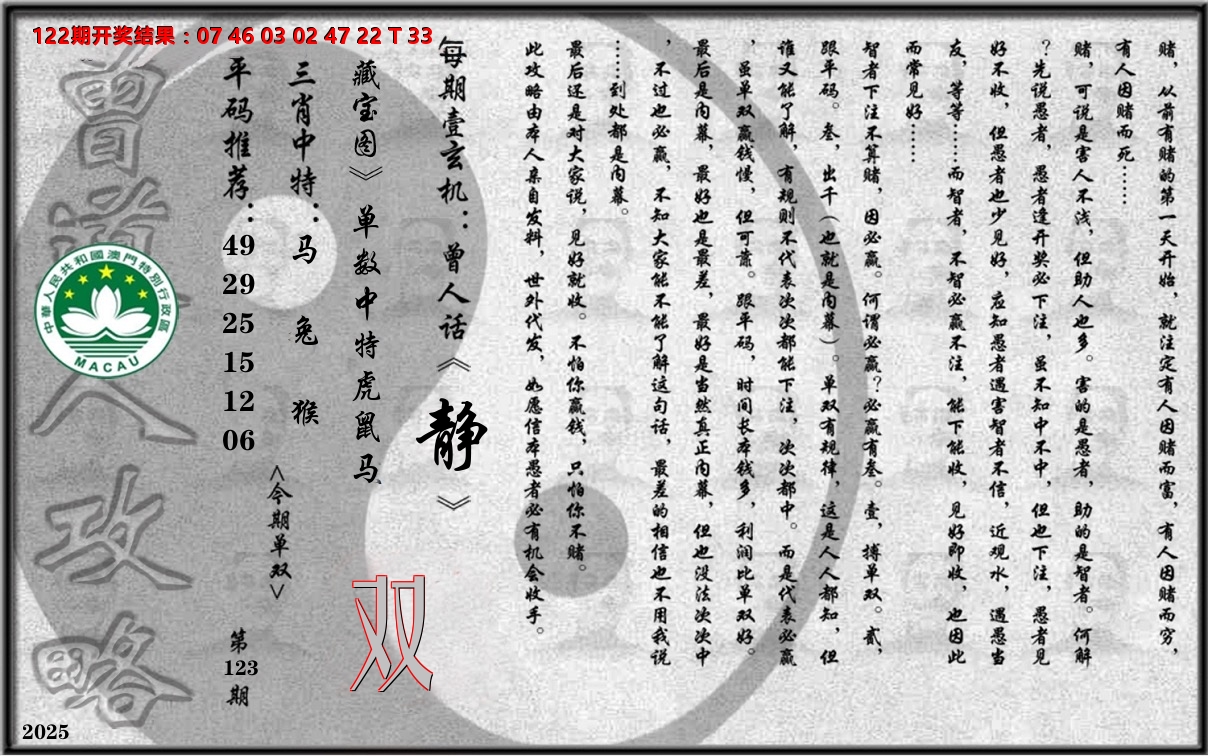 122期开奖结果：07 46 03 02 47 22 T 33
赌，从前有赌的第一天开始，就注定有人因赌而富，有人因赌而穷，
有人因赌而死……
赌，可说是害人不浅，但助人也多。害的是愚者，助的是智者。何解
？先说愚者，愚者逢开奖必下注，虽不知中不中，但也下注，愚者见
好不收，但愚者也少见好，应知愚者遇害智者不信，近观水，遇愚当
友，等等……而智者，不智必赢不注，能下能收，见好即收，也因此
而常见好……
智者下注不算赌，因必赢。何谓必赢？必赢有叁。壹，搏单双。贰，
跟平码。叁，出千（也就是内幕）。单双有规律，这是人人都知，但
谁又能了解，有规则不代表次次都能下注，次次都中。而是代表必赢
，虽单双赢钱慢，但可靠。跟平码，时间长本钱多，利润比单双好。
最后是内幕，最好也是最差，最好是当然真正内幕，但也没法次次中
，不过也必赢，不知大家能不能了解这句话，最差的相信也不用我说
……到处都是内幕。
最后还是对大家说，见好就收。不怕你赢钱，只怕你不赌。
此攻略由本人亲自发料，世外代发，如愿信本愚者必有机会收手。
每期壹玄机：曾人话《静》
藏宝图》单数中特虎鼠马
双
三肖中特：马 兔 猴
<今期单双>
平码推荐：49 29 25 15 12 06
第123期
曾道人攻略
中華人民共和國澳門特別行政區
MACAU
2025